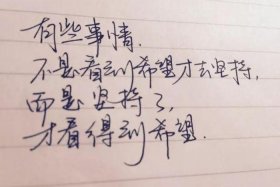 有些事情,
不是看到希望才去坚持,
而是坚持了,
才看得到希望.